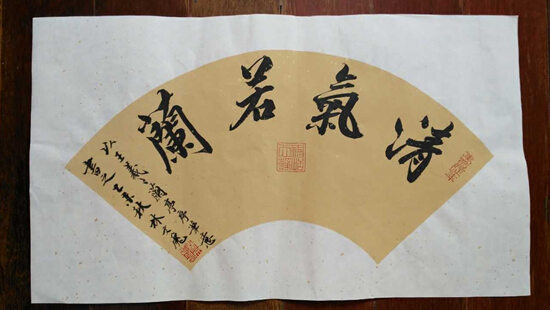 清氣若蘭
以王羲之蘭亭序筆意
書之乙未秋林